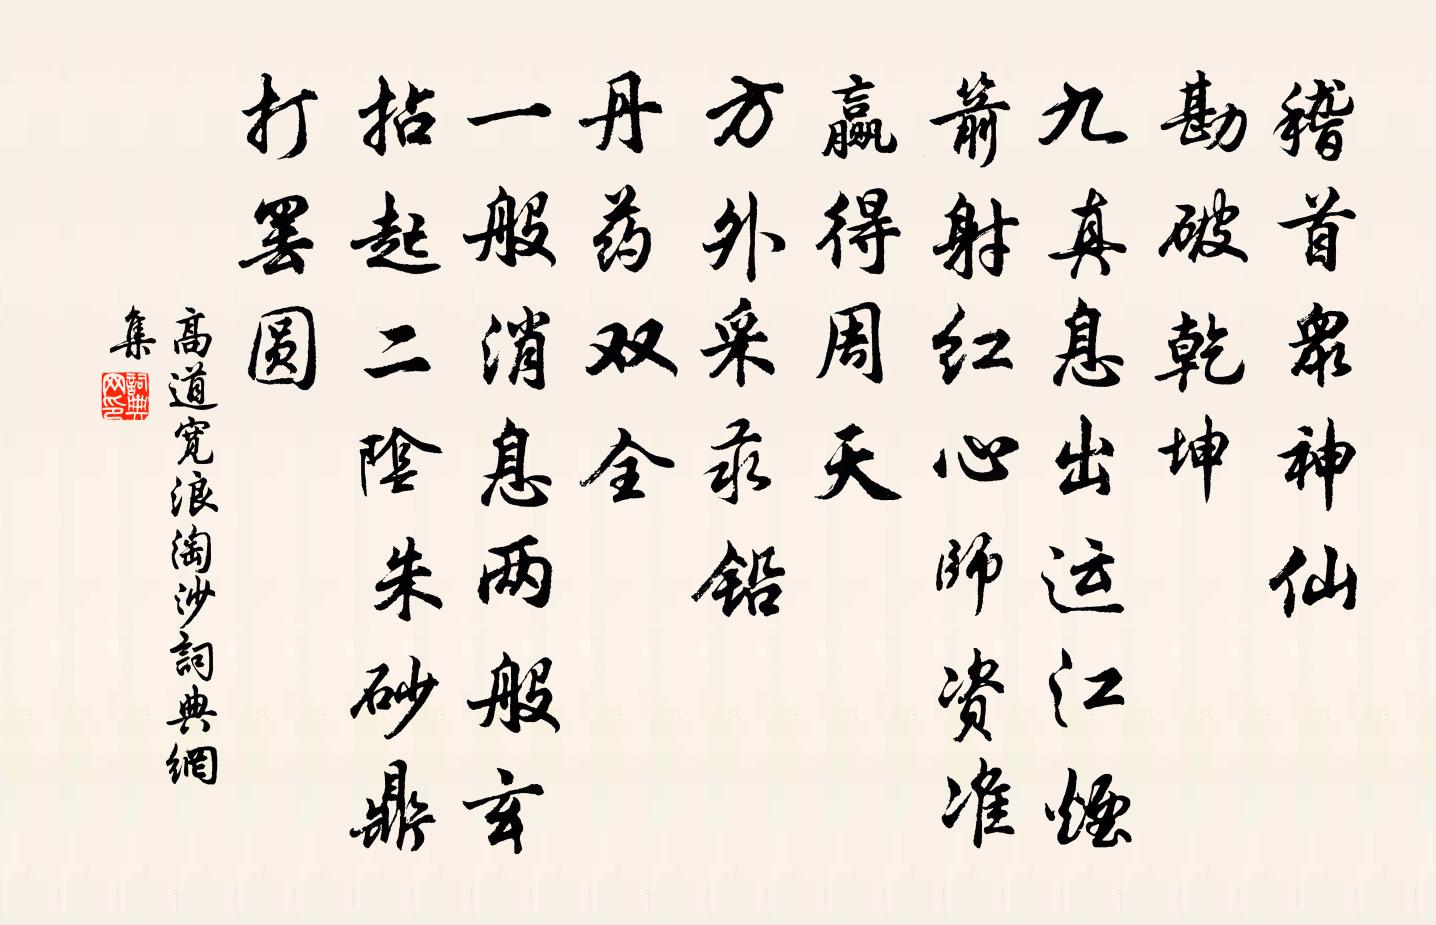 稽首眾神仙
勘破乾坤
九真息出运江煙
箭射红心師资准
贏得周天
方外采汞铅
丹药双全
一般消息两般玄
拈起二陰朱砂鼎
打罢圆
高道宽浪淘沙詞典網
集
詞典
网印